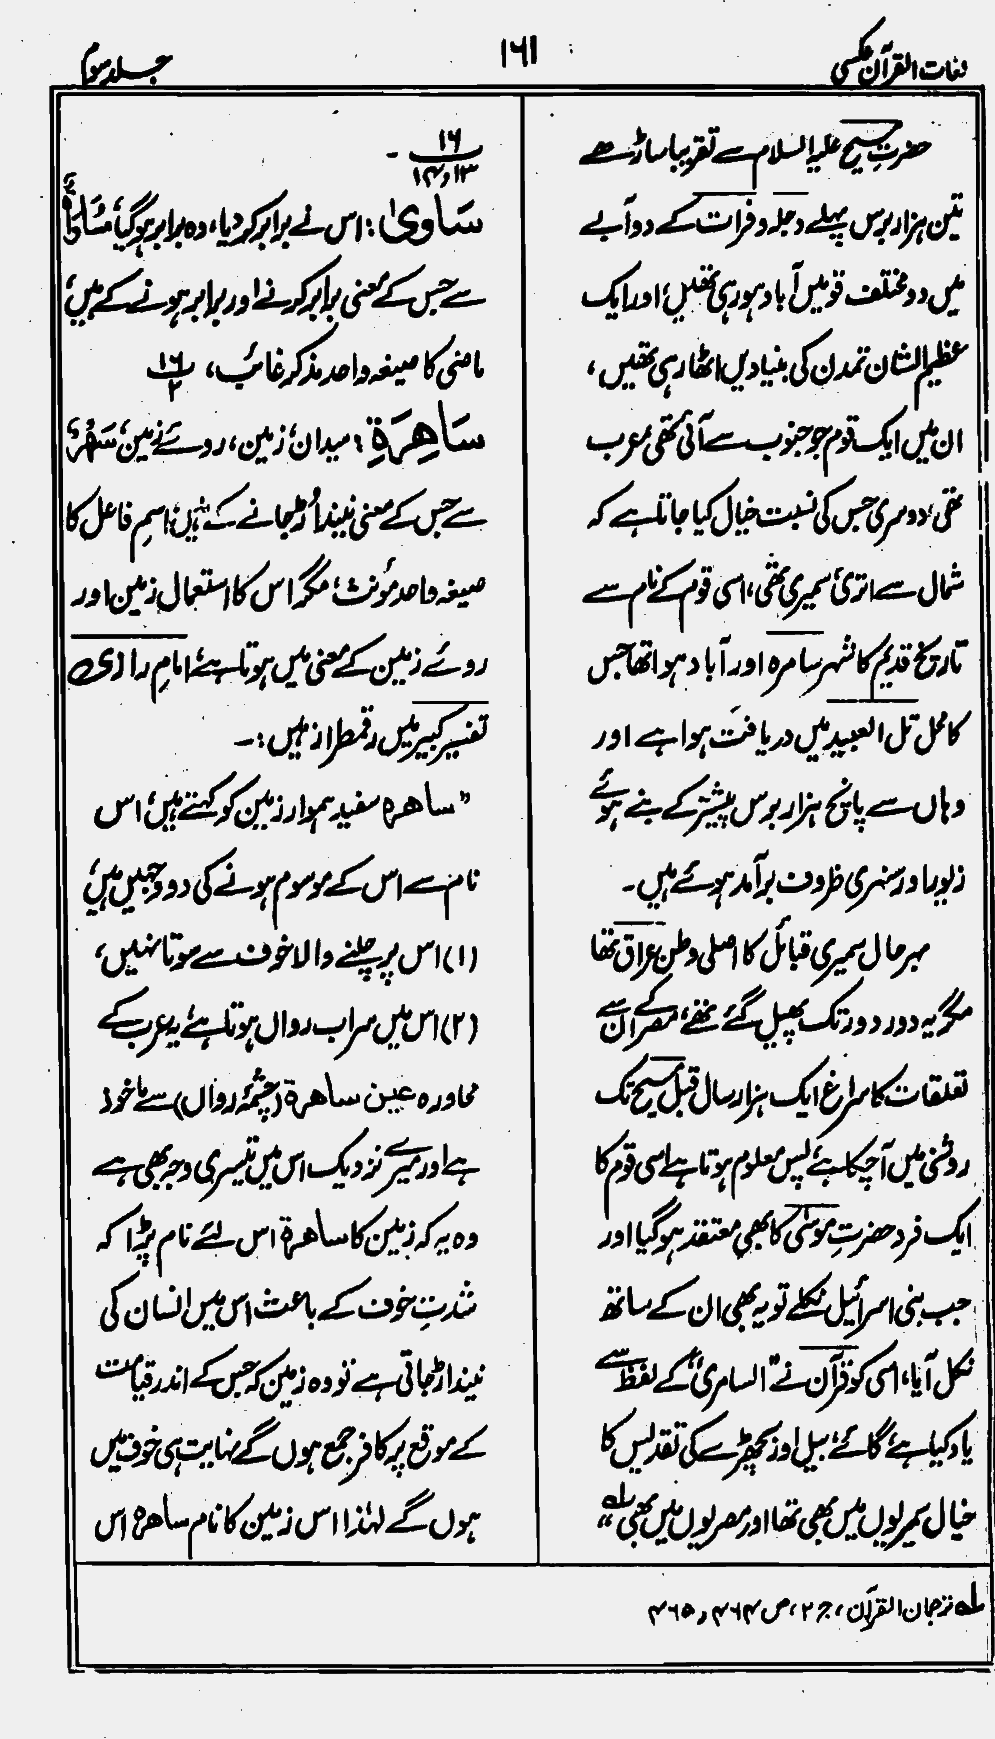 لغات القرآن عکسی
۱۶۱
جلد سوم
حضرتِ مسیح علیہ السلام سے تقریبا ساڑھے
تین ہزار برس پہلے دجلہ و فرات کے دوآبے
میں دو مختلف قومیں آباد ہو رہی تھیں، اور ایک
عظیم الشان تمدن کی بنیادیں اٹھا رہی تھیں،
ان میں ایک قوم جو جنوب سے آئی تھی عرب
تھی، دوسری جس کی نسبت خیال کیا جاتا ہے کہ
شمال سے اتری سمیری تھی، اسی قوم کے نام سے
تاریخ قدیم کا شہر سامرہ اور آباد ہوا تھا جس
کا محل تل العبید میں دریافت ہوا ہے اور
وہاں سے پانچ ہزار برس پیشتر کے بنے ہوئے
زیور اور سنہری ظروف برآمد ہوئے ہیں۔
بہرحال سمیری قبائل کا اصلی وطن عراق تھا
مگر یہ دور دور تک پھیل گئے تھے، مصر ان کے
تعلقات کا سراغ ایک ہزار سال قبل مسیح تک
روشنی میں آچکا ہے، پس معلوم ہوتا ہے اسی قوم کا
ایک فرد حضرتِ موسٰی کا بھی معتقد ہو گیا اور
جب بنی اسرائیل نکلے تو یہ بھی ان کے ساتھ
نکل آیا، اسی کو قرآن نے "السامری" کے لفظ سے
یاد کیا ہے، گائے، بیل اور بچھڑے کی تقدیس کا
خیال سمریوں میں بھی تھا اور مصریوں میں بھی" لہ
۱۶
۱۳ و ۱۴ ۔
سَاویٰ: اس نے برابر کر دیا، وہ برابر ہو گیا، مُسَاوَاۃٌ
سے جس کے معنی برابر کرنے اور برابر ہونے کے ہیں،
ماضی کا صیغہ واحد مذکر غائب، ۱۶/۲
سَاهِرَةِ: میدان، زمین، روئے زمین، سَهَرٌ
سے جس کے معنی نیند اُڑ جانے کے ہیں، اسمِ فاعل کا
صیغہ واحد مؤنث، مگر اس کا استعمال زمین اور
روئے زمین کے معنی میں ہوتا ہے، امامِ رازی
تفسیر کبیر میں رقمطراز ہیں:۔
"ساہرہ سفید ہموار زمین کو کہتے ہیں، اس
نام سے اس کے موسوم ہونے کی دو وجہیں ہیں،
(۱) اس پر چلنے والا خوف سے سوتا نہیں،
(۲) اس میں سراب رواں ہوتا ہے، یہ عرب کے
محاورہ عین ساهرة (چشمۂ رواں) سے ماخوذ
ہے اور میرے نزدیک اس میں تیسری وجہ بھی ہے
وہ یہ کہ زمین کا ساهرة اس لئے نام پڑا کہ
شدتِ خوف کے باعث اس میں انسان کی
نیند اڑ جاتی ہے تو وہ زمین کہ جس کے اندر قیامت
کے موقع پر کافر جمع ہوں گے نہایت ہی خوف میں
ہوں گے لہٰذا اس زمین کا نام ساھرہ اس
لہ ترجمان القرآن، ج ۲، ص ۴۶۴ و ۴۶۵